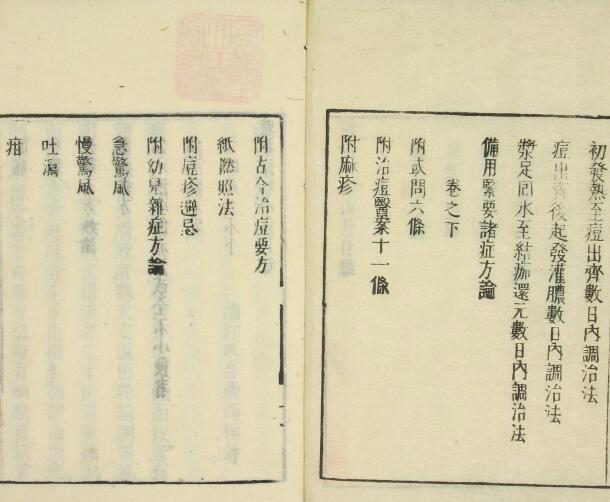 初發熱至痘出齊數日內調治法
痘出齊後起發灌膿數日內調治法
漿足回水至結痂還元數日內調治法
備用緊要諸症方論
卷之下
附或問六條
附治痘醫案十一條
附麻疹
附古今治痘要方
紙撚照法
附痘疹避忌
附幼兒雜症方論
急驚風
慢驚風
吐瀉
疳